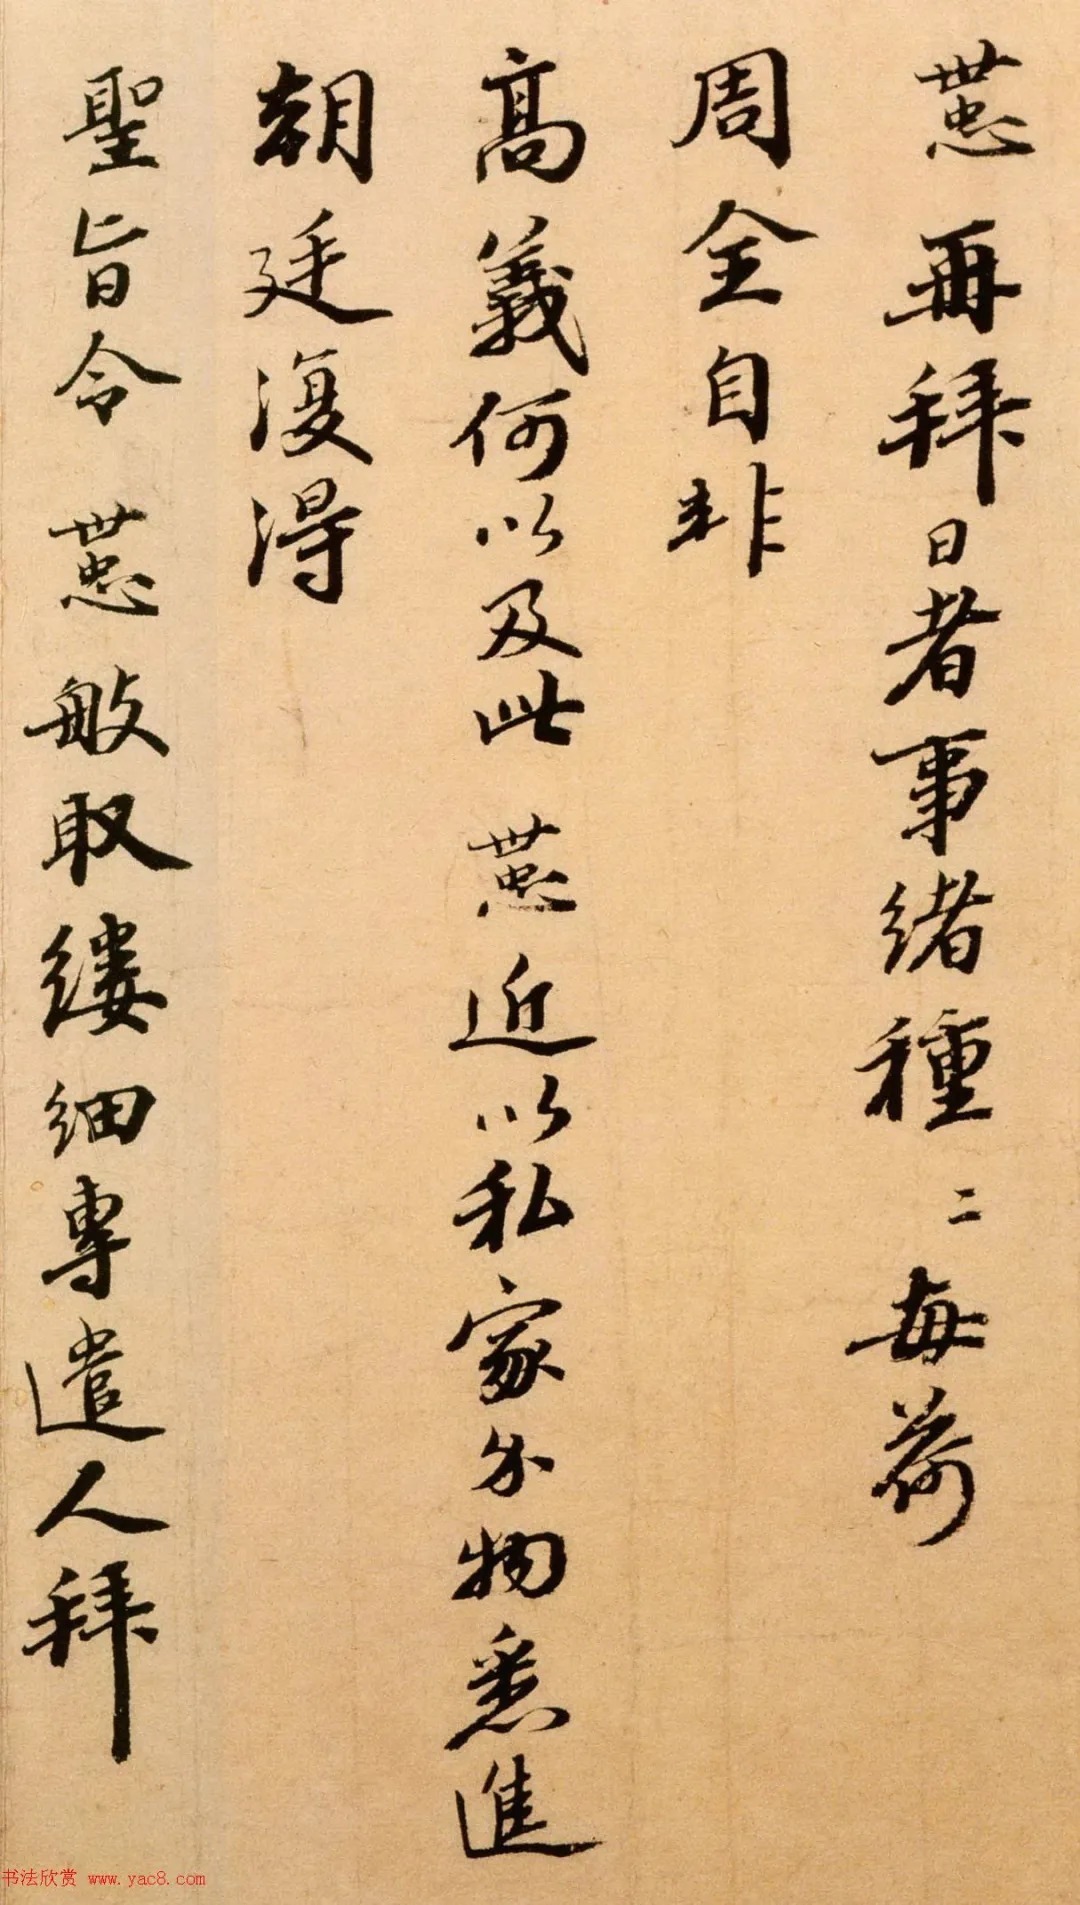 世忠再拜日者事緒種二每荷
周全自非
高義何以及此世忠近以私家分物悉進
朝廷復得
聖旨令世忠般取縷細專遣人拜
书法欣赏 www.yac8.com